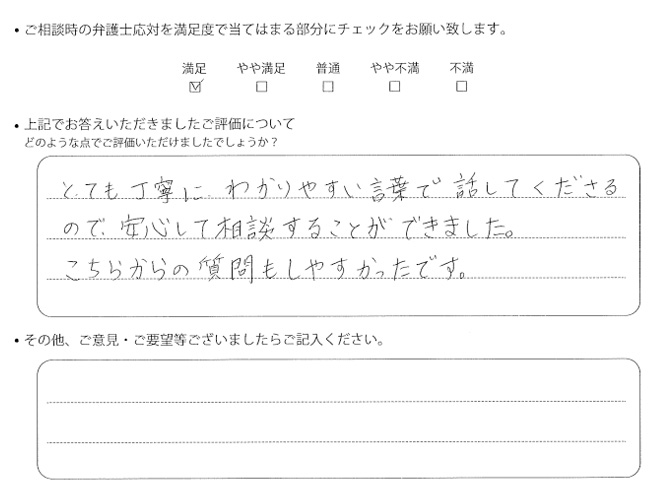 ・ご相談時の弁護士応対を満足度で当てはまる部分にチェックをお願い致します。
満足 やや満足 普通 やや不満 不満
☑ ☐ ☐ ☐ ☐
・上記でお答えいただきましたご評価について
どのような点でご評価いただけましたでしょうか？
とても丁寧に わかりやすい言葉で 話してくださる
ので、安心して相談することができました。
こちらからの質問もしやすかったです。
・その他、ご意見・ご要望等ございましたらご記入ください。